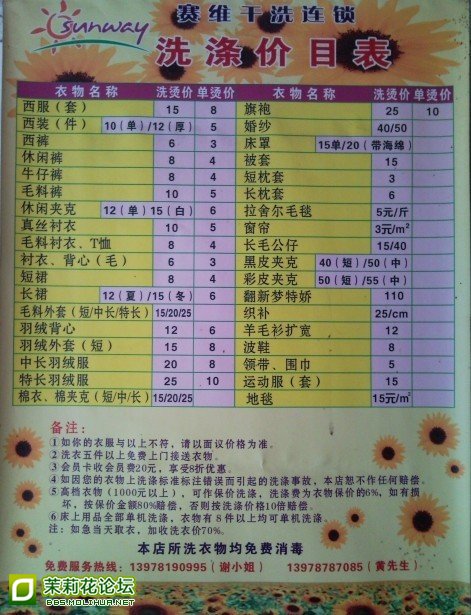 sunway
赛维干洗连锁
洗涤价目表
衣物名称 洗烫价 单烫价 衣物名称 洗烫价 单烫价
西服（套） 15 8 旗袍 25 10
西装（件） 10（单）/12（厚） 5 婚纱 40/50
西裤 6 3 床罩 15单/20（带海绵）
休闲裤 8 4 被套 15
牛仔裤 8 4 短枕套 3
毛料裤 10 5 长枕套 6
休闲夹克 12（单）15（白） 6 拉舍尔毛毯 5元/斤
真丝衬衣 10 5 窗帘 3元/m²
毛料衬衣、T恤 8 4 长毛公仔 15/40
衬衣、背心（毛） 6 3 黑皮夹克 40（短）/50（中）
短裙 8 4 彩皮夹克 50（短）/55（中）
长裙 12（夏）/15（冬） 6 翻新梦特娇 110
毛料外套（短/中长/特长） 15/20/25 织补 25/cm
羽绒背心 12 6 羊毛衫扩宽 12
羽绒外套（短） 15 8 波鞋 8
中长羽绒服 20 8 领带、围巾 5
特长羽绒服 25 10 运动服（套） 15
棉衣、棉夹克（短/中/长） 15/20/25 地毯 15元/m²
备注：
①如你的衣服与以上不符，请以面议价格为准。
②洗衣五件以上免费上门接送衣物。
③会员卡收会员费20元，享受8折优惠。
④如因您的衣物上洗涤标准标注错误而引起的洗涤事故，本店恕不作任何赔偿。
⑤高档衣物（1000元以上），可作保价洗涤，洗涤费为衣物保价的6%，如有损
坏，按保价金额80%赔偿，否则按洗涤价格10倍赔偿。
⑥床上用品全部单机洗涤，衣物有8件以上均可单机洗涤。
注：如急当天取衣，加收洗衣价70%。
本店所洗衣物均免费消毒
免费服务热线：13978190995（谢小姐） 13978787085（黄先生）
茉莉花论坛
BBS.MOLIHUA.NET